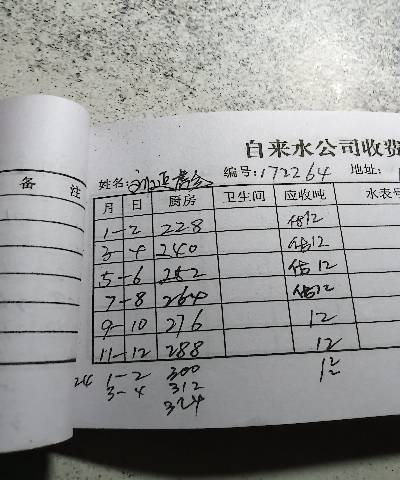 自来水公司收费
备 注
姓名: 编号:172264 地址:
月 日 厨房 卫生间 应收吨 水表号
1-2 228 估12
3-4 240 估12
5-6 252 估12
7-8 264 估12
9-10 276 12
11-12 288 12
1-2 300 12
3-4 312
324